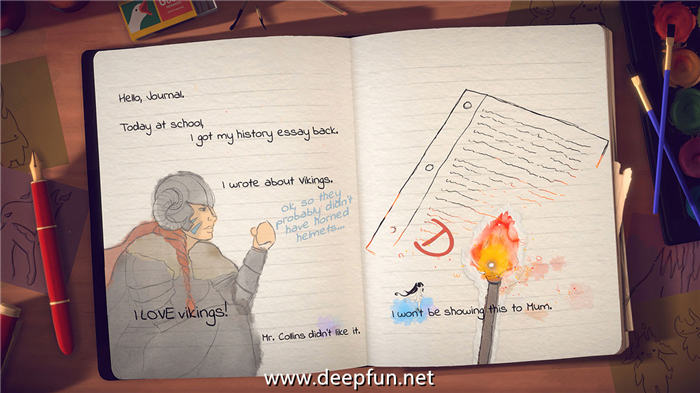 Hello, Journal.
Today at school,
I got my history essay back.
I wrote about Vikings.
ok, so they
probably didn't
have horned
helmets...
I LOVE vikings!
Mr. Collins didn't like it.
D
I won't be showing this to Mum.
www.deepfun.net